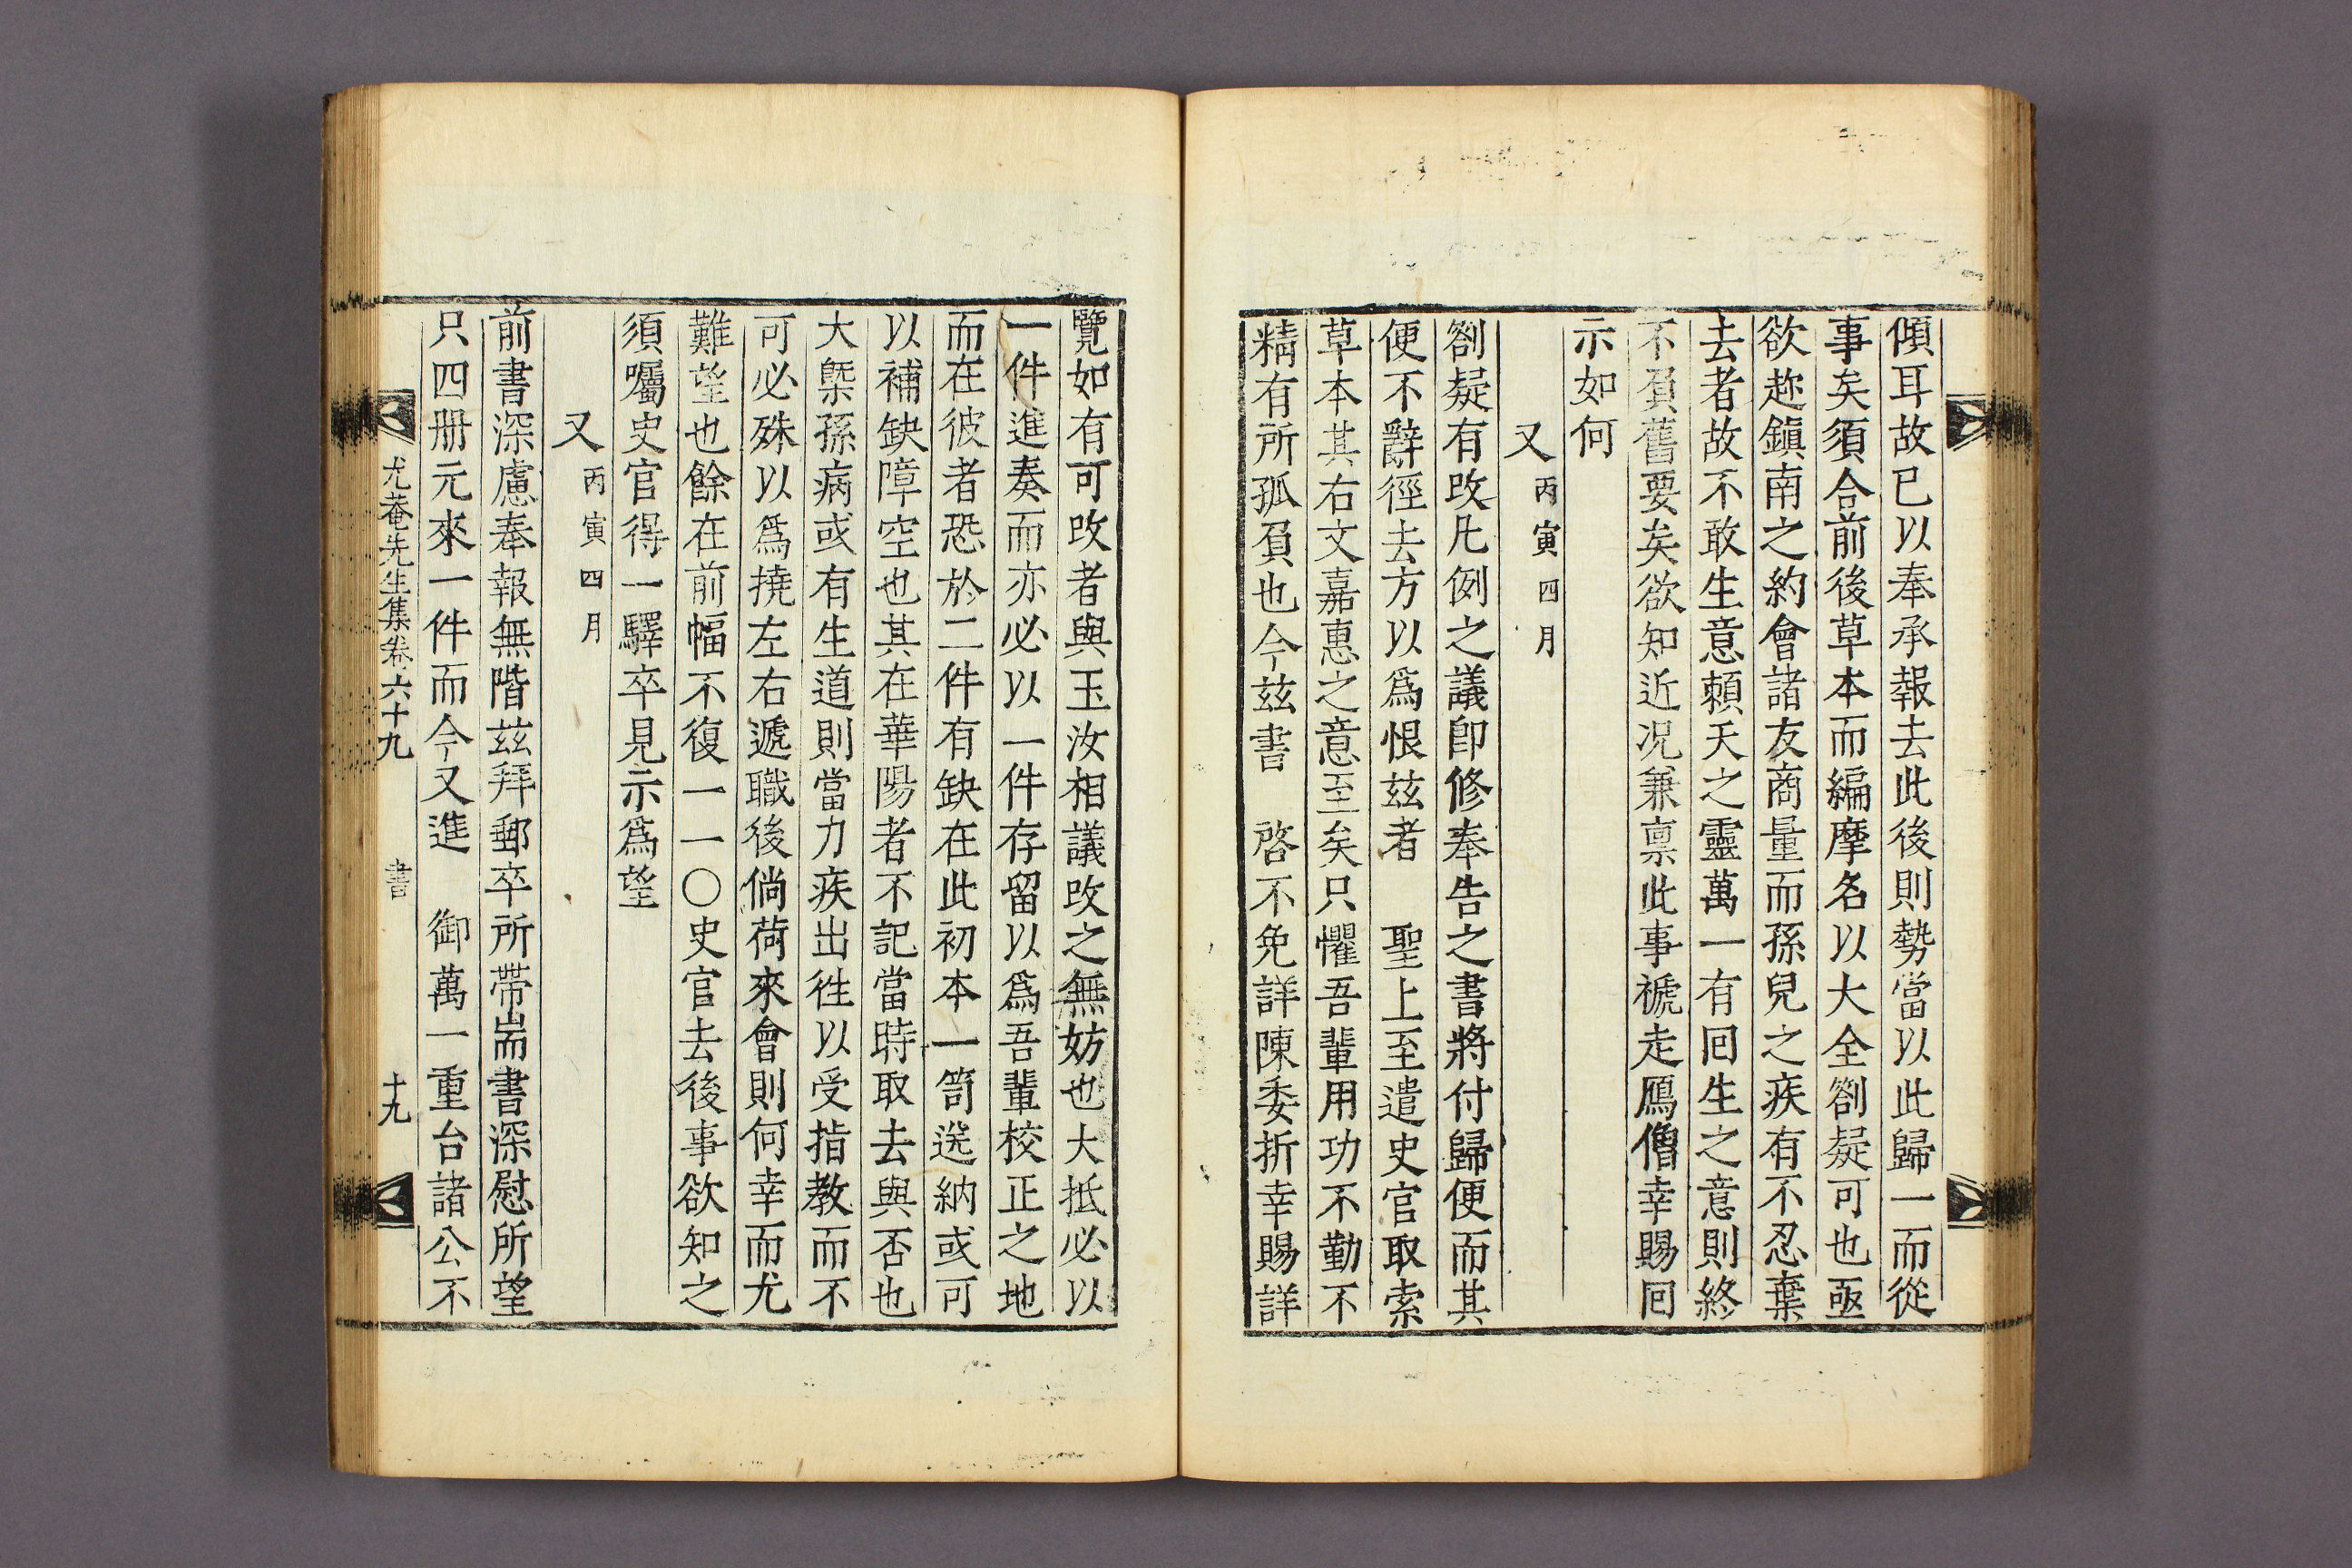 傾耳故已以奉承報去此後則勢當以此歸一而從
事矣須合前後草本而編摩名以大全劄疑可也亟
欲趂鎭南之約會諸友商量而孫兒之疾有不忍棄
去者故不敢生意賴天之靈萬一有回生之意則終
不負舊要矣欲知近況兼稟此事褫走鴈僧幸賜回
示如何
又 丙寅四月
劄疑有改凡例之議卽修奉告之書將付歸便而其
便不辭徑去方以爲恨玆者 聖上至遣史官取索
草本其右文嘉惠之意至矣只懼吾輩用功不勤不
精有所孤負也今玆書 啓不免詳陳委折幸賜詳
覽如有可改者與玉汝相議改之無妨也大抵必以
一件進奏而亦必以一件存留以爲吾輩校正之地
而在彼者恐於二件有缺在此初本一笥送納或可
以補缺障空也其在華陽者不記當時取去與否也
大槩孫病或有生道則當力疾出往以受指教而不
可必殊以爲撓左右遞職後倘荷來會則何幸而尤
難望也餘在前幅不復一一○史官去後事欲知之
須囑史官得一驛卒見示爲望
又 丙寅四月
前書深慮奉報無階玆拜郵卒所帶耑書深慰所望
只四冊元來一件而今又進 御萬一重台諸公不
尤菴先生集卷六十九 書 十九